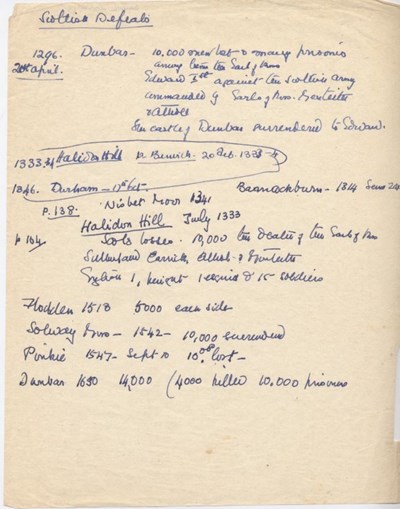 Scottish Defeats
1296. Dunbar - 10,000 men lost & many prisoners
April.
Edward Ist against the Scottish army
commanded by Earls of Ross. Menteith
& Atholl
The castle of Dunbar surrendered to Edward.
1333.34 Halidon Hill nr Berwick. 20
1346. Durham - 17 Oct. Bannockburn - 1314 June 24
P. 138. Nisbet Moor
Halidon Hill July 1333
p 164 Scots losses. 10,000 the Deaths of the Earls of Ross
Sutherland Carrick, Atholl & Menteith
English 1, knight 1 esquire & 15 soldiers
Flodden 1513 5000 each side
Solway Moss - 1542 - 10,000 surrendered
Pinkie 1547 - Sept 10 lost -
Dunbar 1650 14,000 (4000 killed 10,000 prisoners